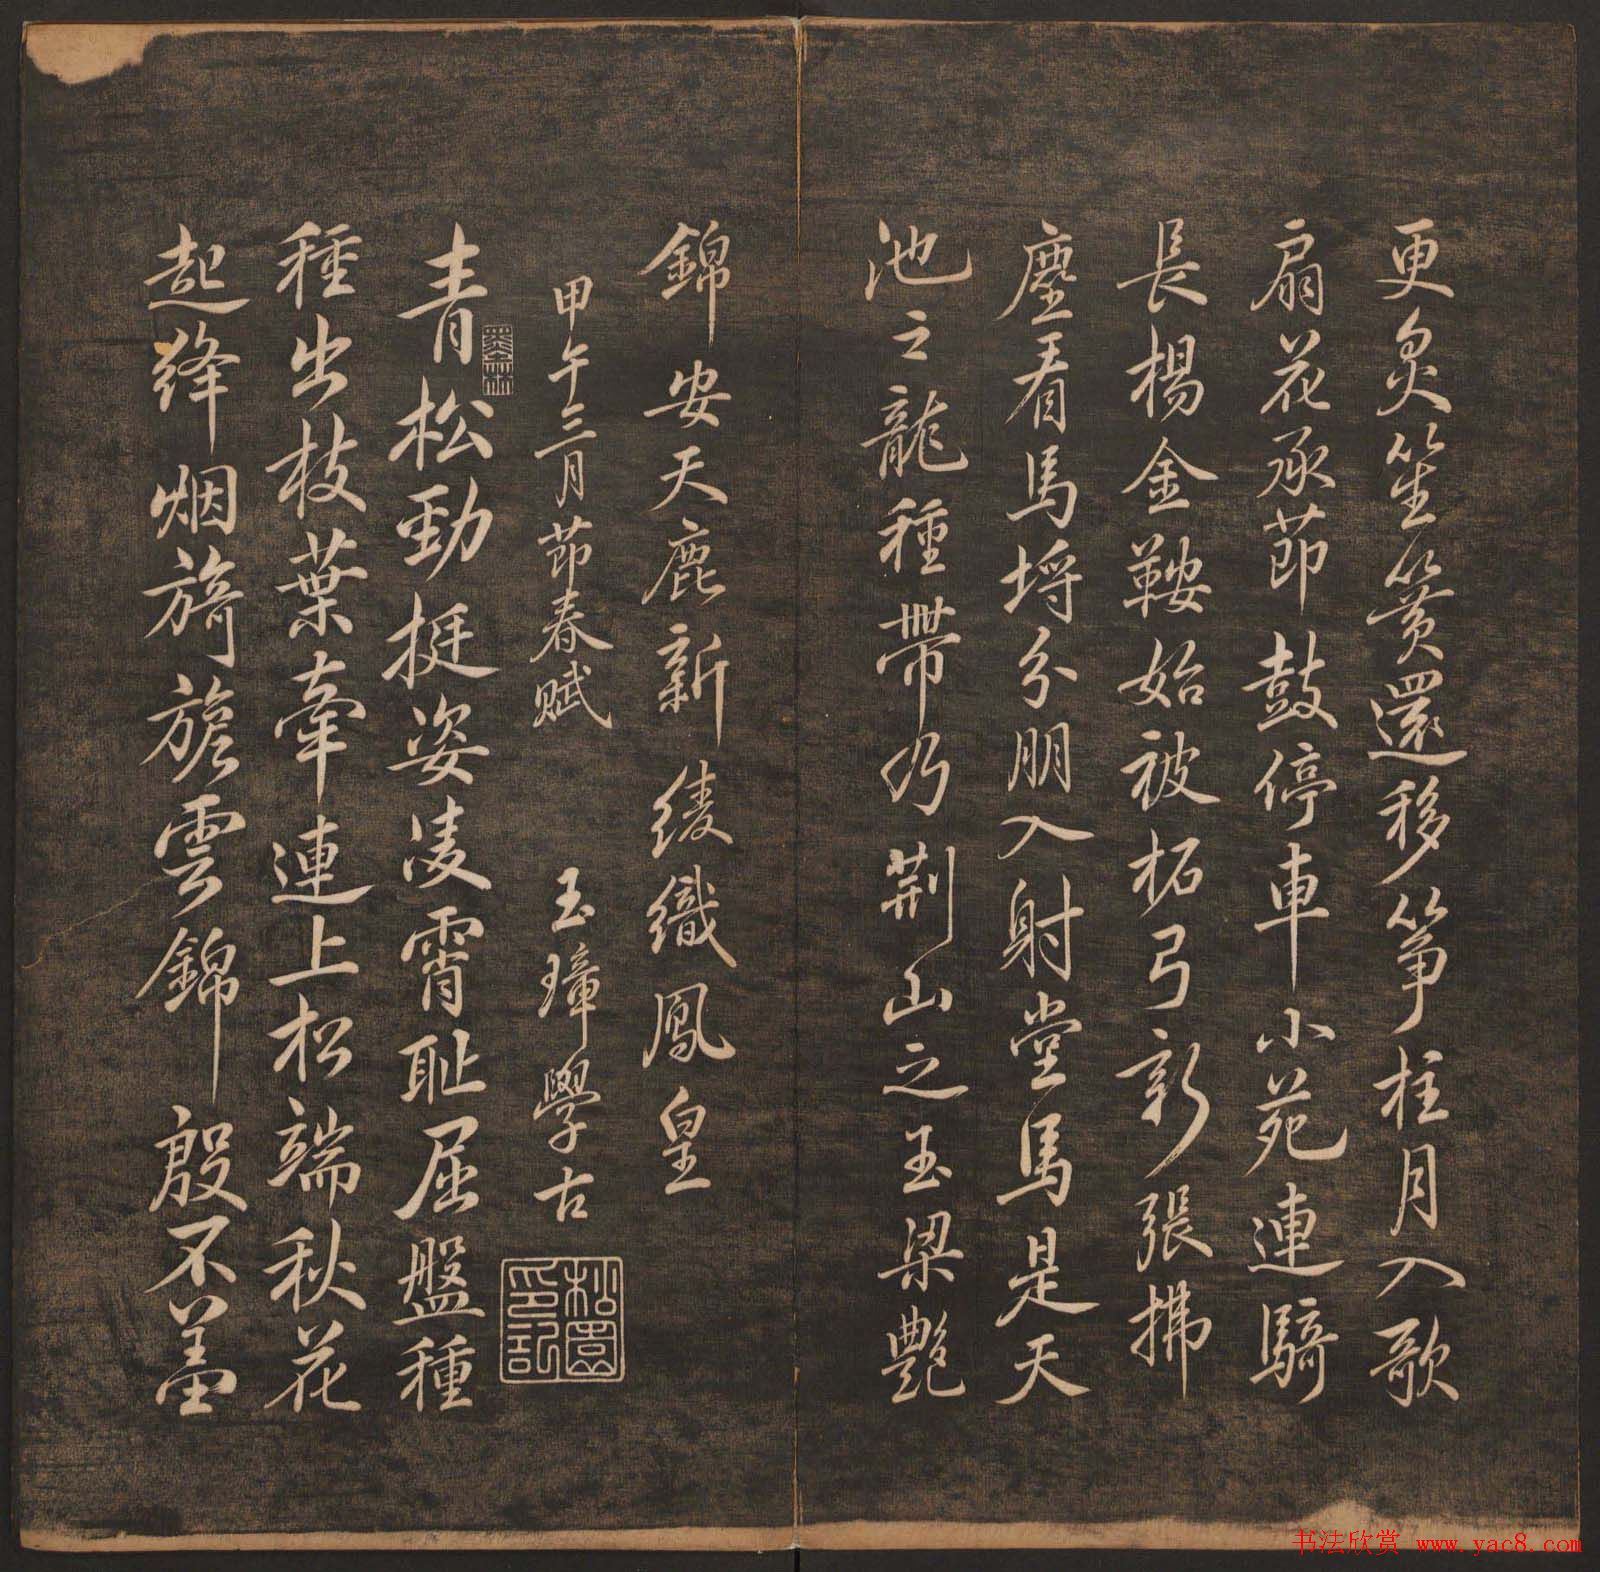 更炙笙簧還移箏柱月入歌
扇花承節鼓停車小苑連騎
長楊金鞍始被柘弓新張拂
塵看馬埒分朋入射堂馬是天
池之龍種帶乃荆山之玉梁艷
錦安天鹿新綾織鳳皇
甲午三月節春賦
玉璋學古
松園印記
墨林
青松勁挺姿凌霄恥屈盤種
種出枝葉牽連上松端秋花
起絳烟旖旎雲錦殷不羞
书法欣赏 www.yac8.com